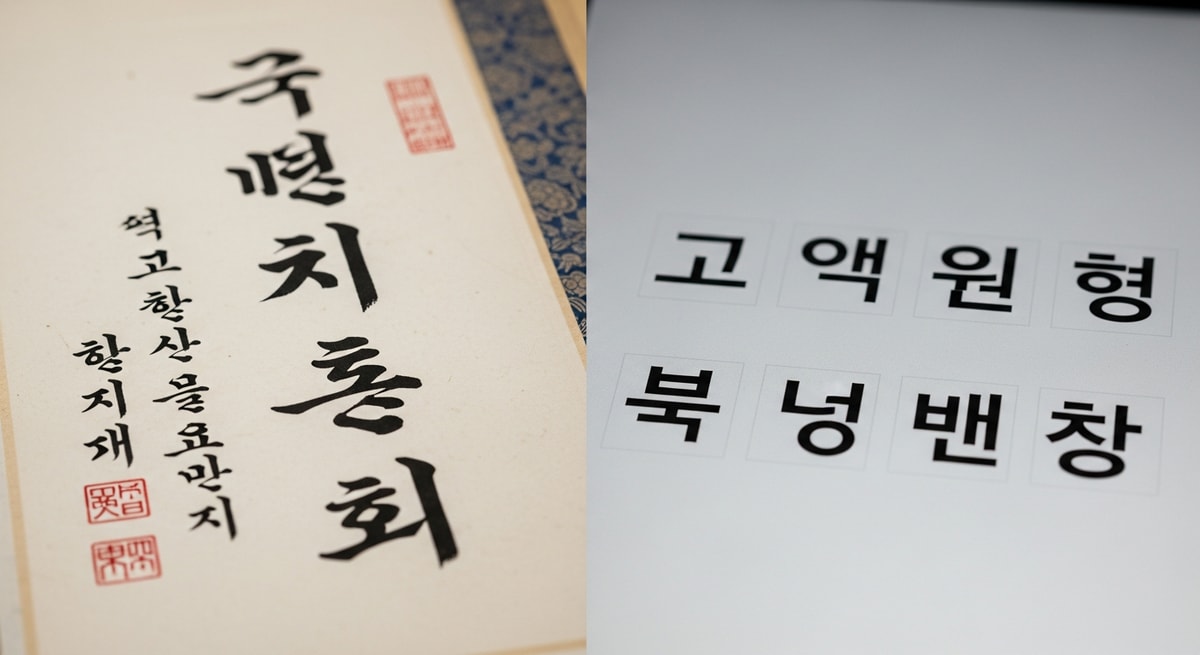 국치회
고한산믈요만지
한지재
고액원형
북넝밴창